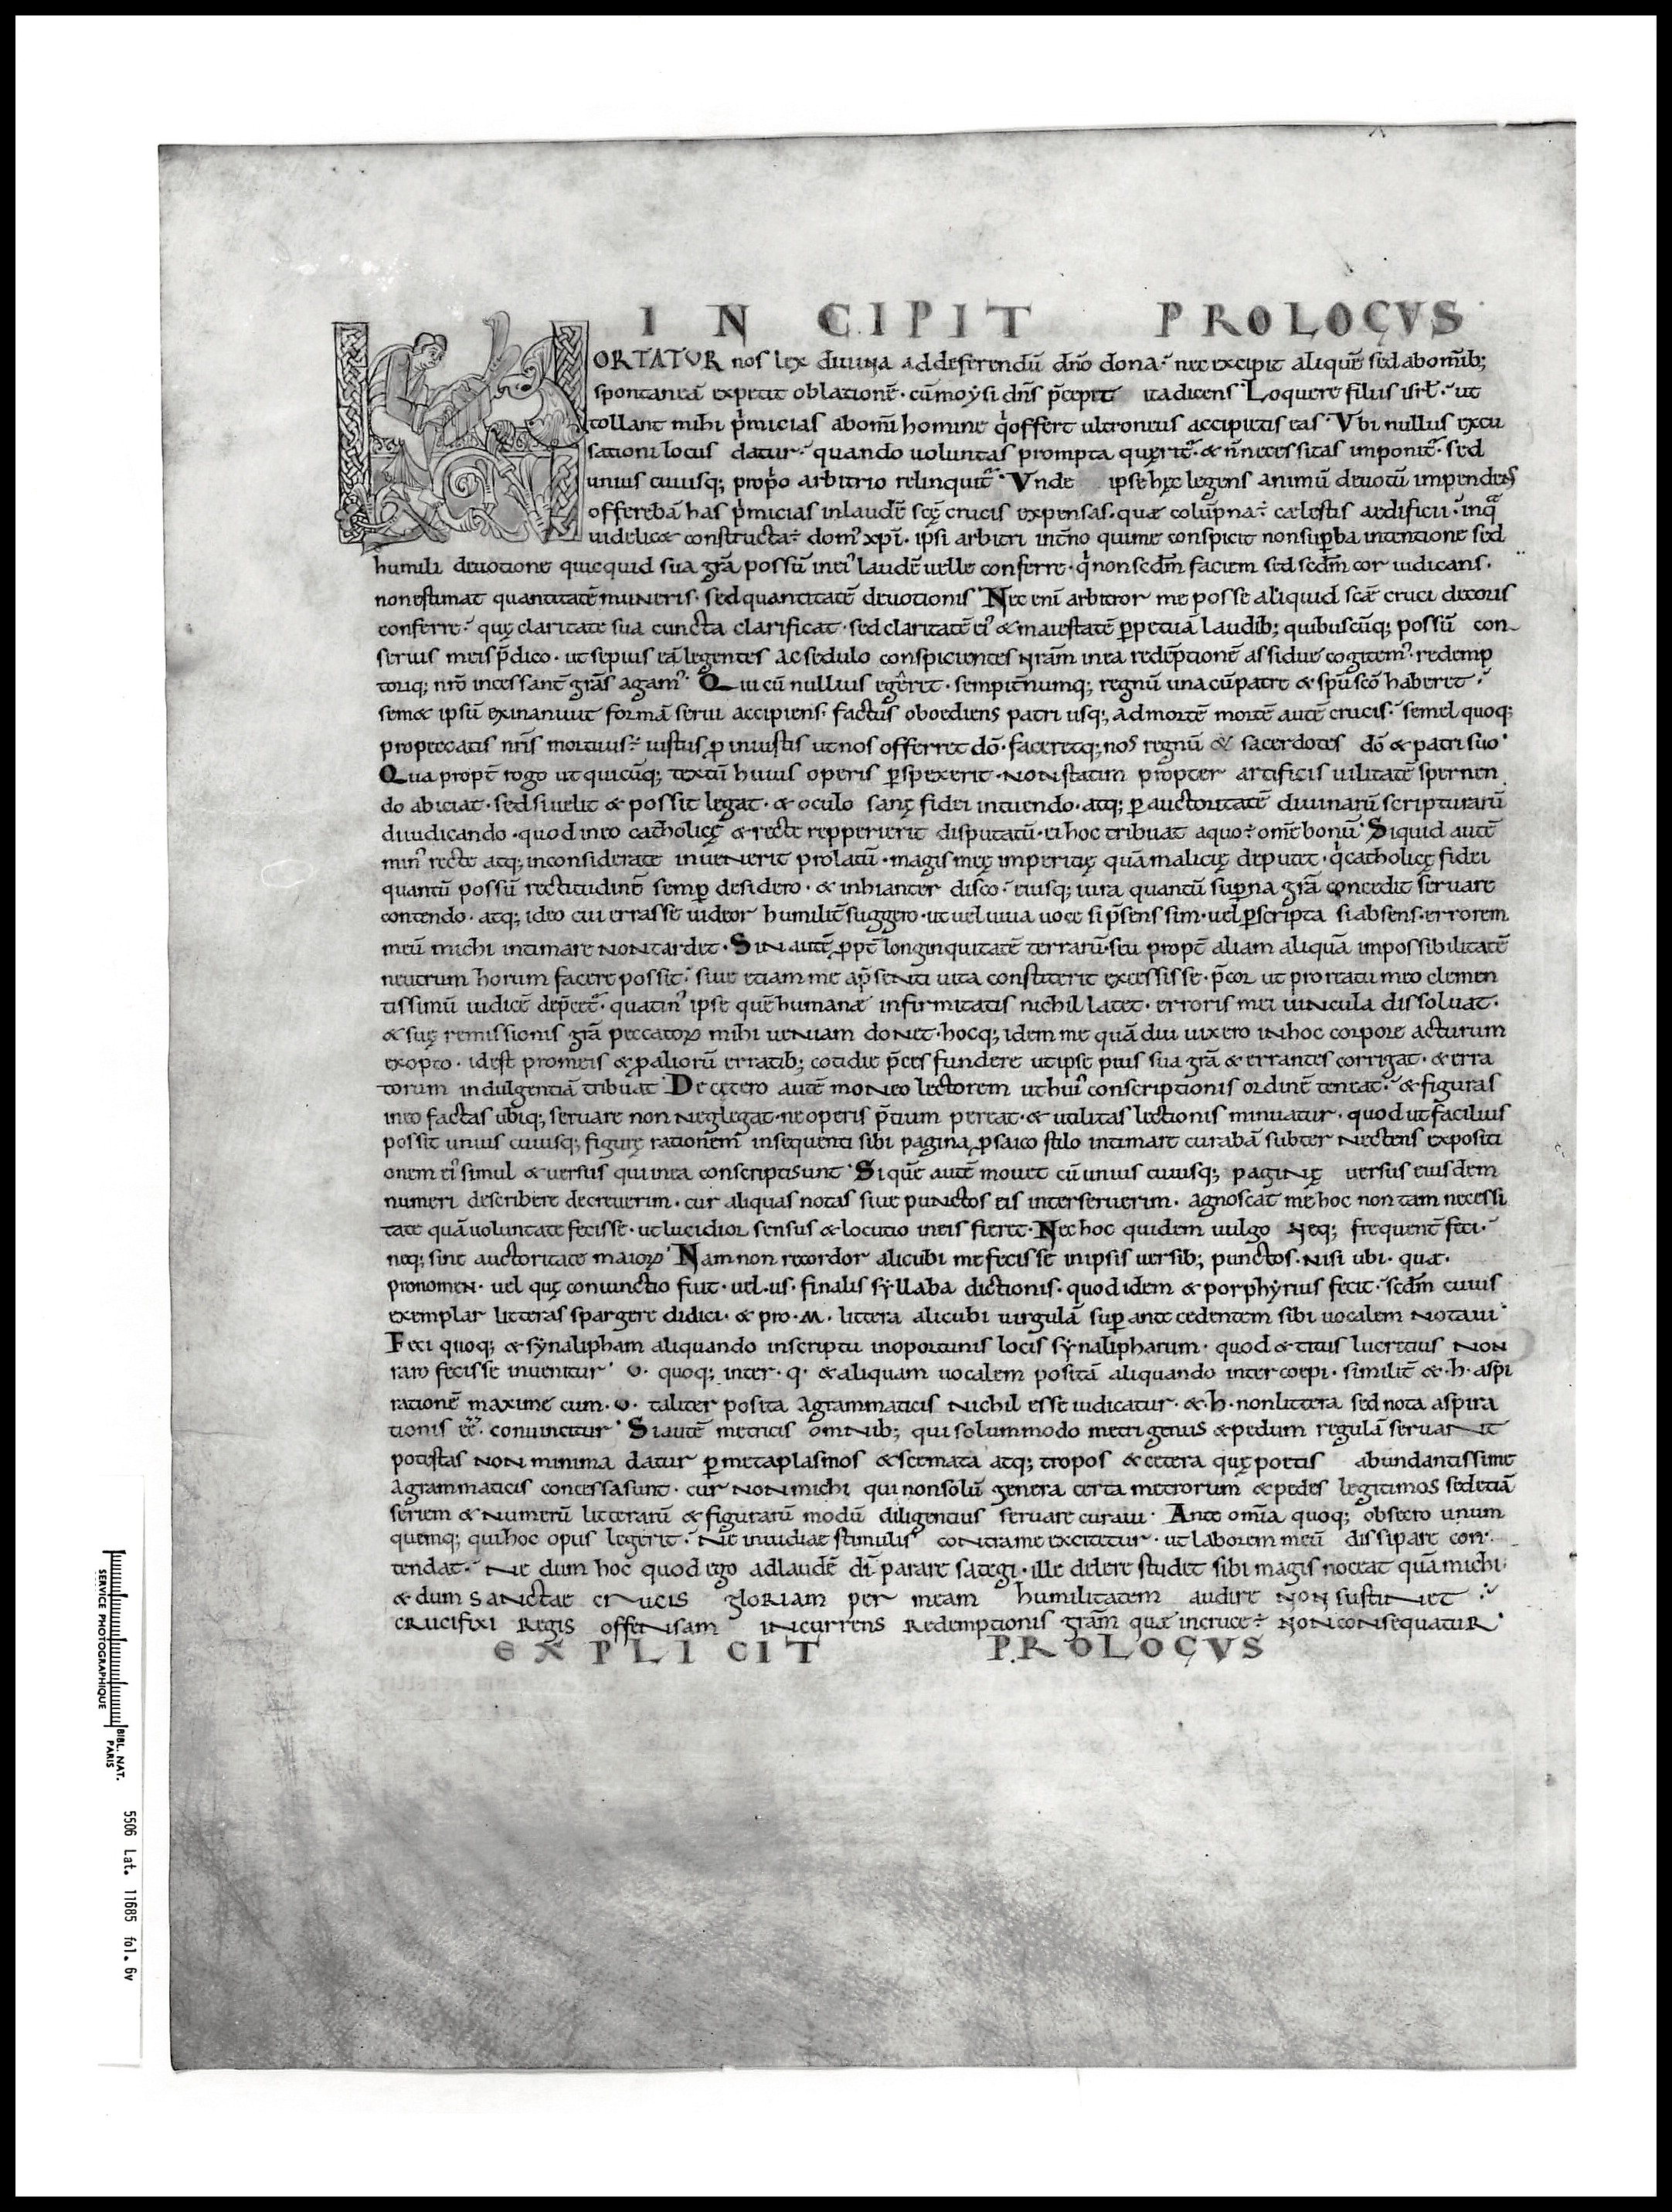 IN CIPIT PROLOGVS
HORTATUR nos lex diuina ad deferendū dn̄o dona. nec excipit aliquē sed ab om̄ib;
spontaneā expetit oblationē. cū moysi dn̄s p̄cepit ita dicens Loquere filiis isrł. ut
tollant mihi pͥmicias ab om̄i homine qͥ offert ultroneus accipietis eas. Vbi nullus excu
sationi locus datur. quando uoluntas prompta quęrit᷑. & n̄ necessitas imponit᷑. sed
unius cuiusq; propͥo arbitrio relinquit᷑. Vnde ipse hęc legens animū deuotū impendens
offerebā has pͥmicias in laudē scę̄ crucis expensas. quæ colūpna ÷ cælestis ædificii. in qͣ
uidelicet constructa ÷ domꝰ xpī. ipsi arbitri int̄no qui me conspicit non suꝑba intentione sed
humili deuotione quicquid sua grā possū in eiꝰ laudē uelle conferre. qͥ non scdm̄ faciem sed scdm̄ cor iudicans.
non estimat quantitatē muneris. sed quantitatē deuotionis Nec enī arbitror me posse aliquid scǣ cruci decoris
conferre. quę claritate sua cuncta clarificat. sed claritatē eiꝰ & maiestatē ꝑpetuā laudib; quibuscūq; possū con
seruis meis p̄dico. ut sepius eā legentes ac sedulo conspicientes nr̄am in ea redēptionē assidue cogitemꝰ. redemp
toriq; nr̄o incessant̄ grā̄s agamꝰ. Qui cū nullius egeret. sempit̄numq; regnū una cū patre & sp̄u sc̄o haberet.
semet ipsū exinaniuit formā serui accipiens. factus oboediens patri usq; ad mortē mortē autē crucis. semel quoq;
pro peccatis nr̄is mortuus ÷ iustus ꝓ iniustis ut nos offerret dō. faceretq; nos regnū & sacerdotes dō & patri suo.
Qua propt̄ rogo ut quicūq; textū huius operis ꝑspexerit. non statim propter artificis uilitatē spernen
do abiciat. sed si uelit & possit legat. & oculo sanę fidei intuendo. atq; ꝑ auctoritatē diuinarū scripturarū
diiudicando. quod in eo catholicę & recte repperierit disputatū. ei hoc tribuat a quo ÷ om̄e bonū. Siquid autē
minꝰ recte atq; inconsiderate inuenerit prolatū. magis meę imperitię quā malicię deputet. qͥ catholicę fidei
quantū possū rectitudinē semꝑ desidero. & inhianter disco. eiusq; iura quantū suꝑna grā concedit seruare
contendo. atq; ideo cui errasse uideor humilit̄ suggero. ut uel uiua uoce si p̄sens sim. uel ꝑ scripta si absens. errorem
meū michi intimare non tardet. Sin autē ꝓpt̄ longinquitatē terrarū. seu propt̄ aliam aliquā impossibilitatē
neutrum horum facere possit. siue etiam me a p̄senti uita constiterit excessisse. p̄cor ut pro reatu meo clemen
tissimū iudicē dep̄cet᷑. quatinꝰ ipse quē humanæ infirmitatis nichil latet. erroris mei uincula dissoluat.
& suę remissionis grā peccatoꝝ mihi ueniam donet. hocq; idem me quā diu uixero in hoc corpore acturum
exopto. id est pro meis & ꝓ aliorū erratib; cotidie p̄ces fundere ut ipse pius sua grā & errantes corrigat. & erra
torum indulgentiā tribuat De cętero autē moneo lectorem ut huiꝰ conscriptionis ordinē teneat. & figuras
in eo factas ubiq; seruare non neglegat. ne operis p̄tium pereat. & utilitas lectionis minuatur. quod ut facilius
possit unius cuiusq; figurę rationem insequenti sibi pagina ꝓsaico stilo intimare curabā subter nectens expositi
onem eiꝰ simul & uersus qui in ea conscripti sunt. Si quē autē mouet cū unius cuiusq; paginę uersus eiusdem
numeri describere decreuerim. cur aliquas notas siue punctos eis interseruerim. agnoscat me hoc non tam necessi
tate quā uoluntate fecisse. ut lucidior sensus & locutio in eis fieret. Nec hoc quidem uulgo neq; frequent̄ feci.
neq; sine auctoritate maioꝝ. Nam non recordor alicubi me fecisse in ipsis uersib; punctos. nisi ubi. quæ.
pronomen. uel quę coniunctio fuit. uel. us. finalis syllaba dictionis. quod idem & porphyrius fecit. scdm̄ cuius
exemplar litteras spargere didici. & pro. M. littera alicubi uirgulā suꝑ ante cedentem sibi uocalem notaui.
Feci quoq; & synalipham aliquando in scriptu inoportunis locis synalipharum. quod & titus lucretius non
raro fecisse inuenitur. v. quoq; inter. q. & aliquam uocalem positā aliquando intercoepi. similit̄ & .h. aspi
rationē maxime cum. v. taliter posita a grammaticis nichil esse iudicatur. & .h. non littera sed nota aspira
tionis eē. conuincitur. Si autē metricis omnib; qui solummodo metri genus & pedum regulā seruant
potestas non minima datur ꝑ metaplasmos & scemata atq; tropos & cetera quę poetis abundantissime
a grammaticis concessa sunt. cur non michi qui non solū genera certa metrorum & pedes legitimos sed etiā
seriem & numerū litterarū & figurarū modū diligentius seruare curaui. Ante om̄ia quoq; obsecro unum
quemq; qui hoc opus legerit. Ne inuidiae stimulis contra me excitetur. ut laborem meū dissipare con
tendat. ne dum hoc quod ego ad laudē dī parare sategi. ille delere studet sibi magis noceat quā michi
& dum sanctae crucis gloriam per meam humilitatem audire non sustinet
crucifixi Regis offensam incurrens Redemptionis grā̄m quæ in cruce ÷ non consequatur.
EXPLICIT PROLOGVS
SERVICE PHOTOGRAPHIQUE
BIBL. NAT. PARIS
5506 Lat. 11685 fol. 6v